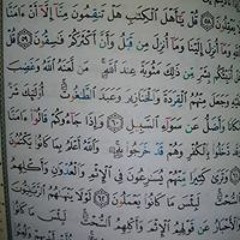 ٥٨ قُلْ يَٰٓأَهْلَ ٱلْكِتَٰبِ هَلْ تَنقِمُونَ مِنَّآ إِلَّآ أَنْ ءَامَنَّا
وَمَآ أُنزِلَ إِلَيْنَا وَمَآ أُنزِلَ مِن قَبْلُ وَأَنَّ أَكْثَرَكُمْ فَٰسِقُونَ ٥٩ قُلْ
أُنَبِّئُكُم بِشَرٍّ مِّن ذَٰلِكَ مَثُوبَةً عِندَ ٱللَّهِ مَن لَّعَنَهُ ٱللَّهُ وَغَضِبَ
وَجَعَلَ مِنْهُمُ ٱلْقِرَدَةَ وَٱلْخَنَازِيرَ وَعَبَدَ ٱلطَّٰغُوتَ أُو۟لَٰٓئِكَ شَرٌّ
مَّكَانًا وَأَضَلُّ عَن سَوَآءِ ٱلسَّبِيلِ ٦٠ وَإِذَا جَآءُوكُمْ قَالُوٓا۟ ءَامَنَّا
وَقَد دَّخَلُوا۟ بِٱلْكُفْرِ وَهُمْ قَدْ خَرَجُوا۟ بِهِۦ وَٱللَّهُ أَعْلَمُ بِمَا كَانُوا۟ يَكْتُمُونَ
وَتَرَىٰ كَثِيرًا مِّنْهُمْ يُسَٰرِعُونَ فِى ٱلْإِثْمِ وَٱلْعُدْوَٰنِ وَأَكْلِهِمُ
لَبِئْسَ مَا كَانُوا۟ يَعْمَلُونَ ٦٢ لَوْلَا يَنْهَىٰهُمُ ٱلرَّبَّٰنِيُّونَ
وَٱلْأَحْبَارُ عَن قَوْلِهِمُ ٱلْإِثْمَ وَأَكْلِهِمُ ٱلسُّحْتَ لَبِئْسَ مَا كَانُوا۟